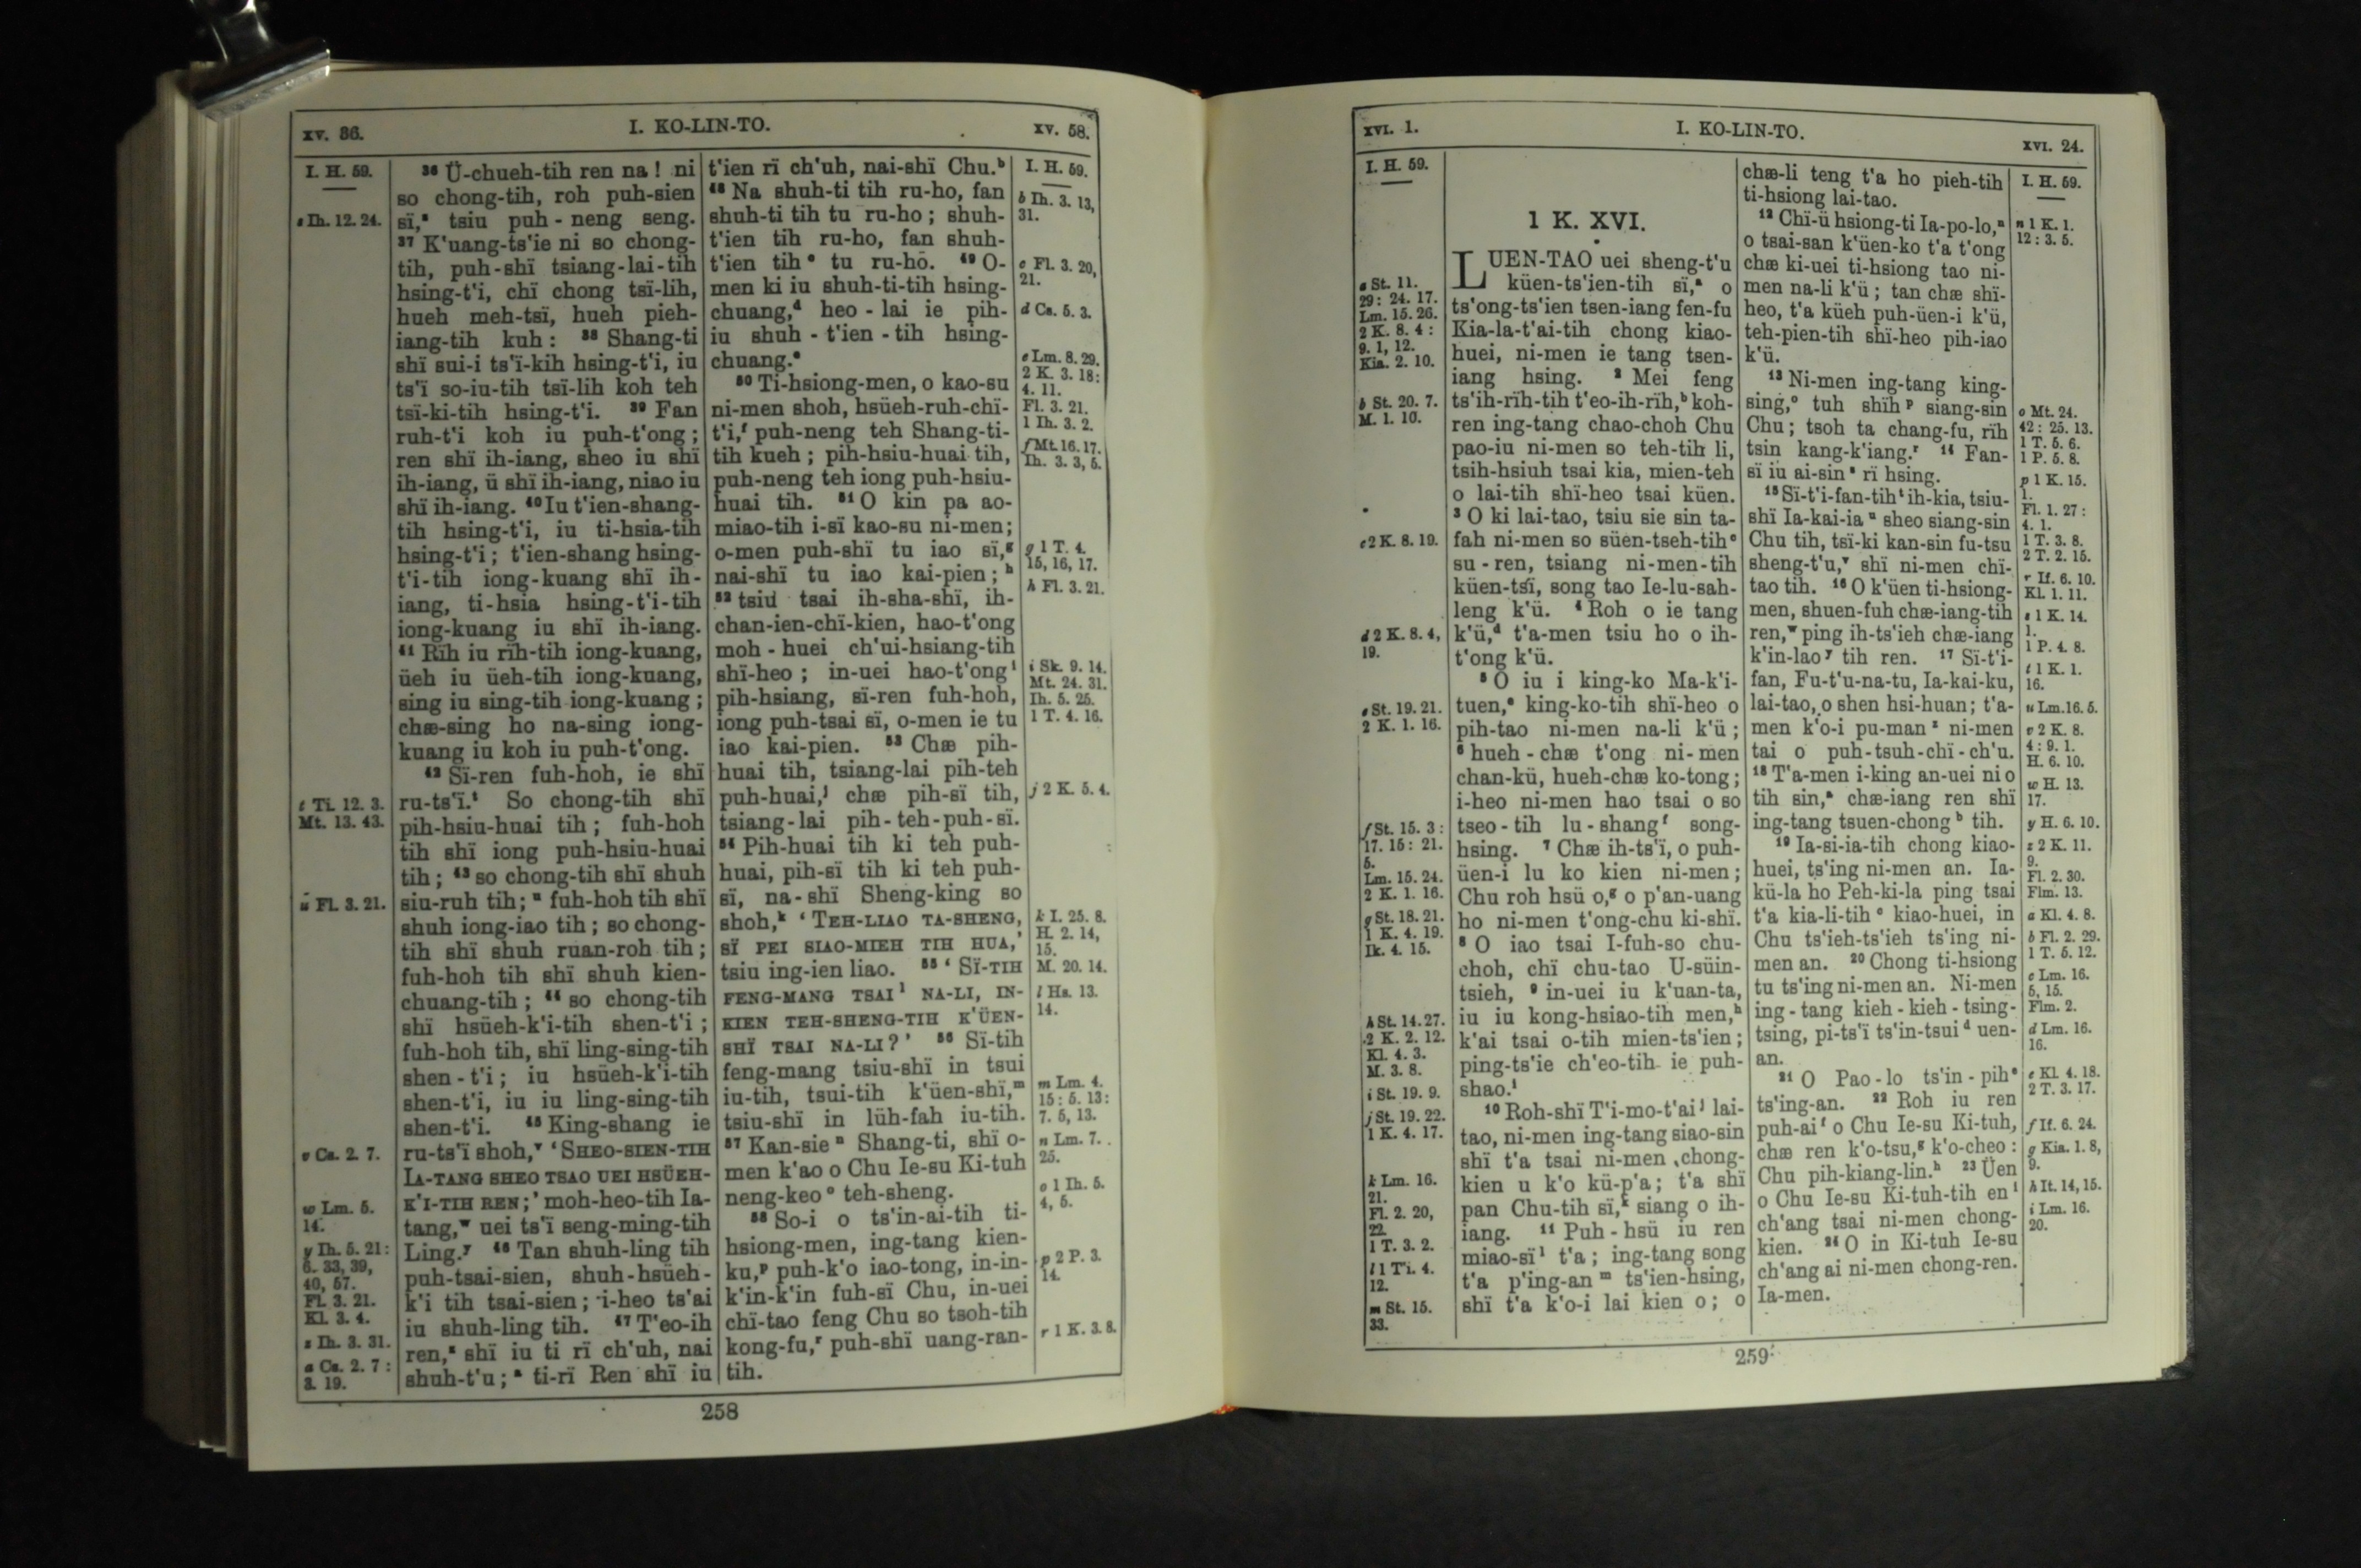 xv. 36.
I. KO-LIN-TO.
xv. 58.
I. H. 59.
s Ih. 12. 24.
t Ti. 12. 3.
Mt. 13. 43.
u Fl. 3. 21.
v Cs. 2. 7.
w Lm. 5.
14.
y Ih. 5. 21:
6. 33, 39,
40, 57.
Fl. 3. 21.
Kl. 3. 4.
z Ih. 3. 31.
a Cs. 2. 7:
3. 19.
³⁶ Ü-chueh-tih ren na! ni
so chong-tih, roh puh-sien
sï,ˢ tsiu puh-neng seng.
³⁷ K'uang-ts'ie ni so chong-
tih, puh-shï tsiang-lai-tih
hsing-t'i, chï chong tsï-lih,
hueh meh-tsï, hueh pieh-
iang-tih kuh: ³⁸ Shang-ti
shï sui-i ts'ï-kih hsing-t'i, iu
ts'ï so-iu-tih tsï-lih koh teh
tsï-ki-tih hsing-t'i. ³⁹ Fan
ruh-t'i koh iu puh-t'ong;
ren shï ih-iang, sheo iu shï
ih-iang, ü shï ih-iang, niao iu
shï ih-iang. ⁴⁰ Iu t'ien-shang-
tih hsing-t'i, iu ti-hsia-tih
hsing-t'i; t'ien-shang hsing-
t'i-tih iong-kuang shï ih-
iang, ti-hsia hsing-t'i-tih
iong-kuang iu shï ih-iang.
⁴¹ Rïh iu rïh-tih iong-kuang,
üeh iu üeh-tih iong-kuang,
sing iu sing-tih iong-kuang;
chæ-sing ho na-sing iong-
kuang iu koh iu puh-t'ong.
⁴² Sï-ren fuh-hoh, ie shï
ru-ts'ï.ᵗ So chong-tih shï
pih-hsiu-huai tih; fuh-hoh
tih shï iong puh-hsiu-huai
tih; ⁴³ so chong-tih shï shuh
siu-ruh tih;ᵘ fuh-hoh tih shï
shuh iong-iao tih; so chong-
tih shï shuh ruan-roh tih;
fuh-hoh tih shï shuh kien-
chuang-tih; ⁴⁴ so chong-tih
shï hsüeh-k'i-tih shen-t'i;
fuh-hoh tih, shï ling-sing-tih
shen-t'i; iu hsüeh-k'i-tih
shen-t'i, iu iu ling-sing-tih
shen-t'i. ⁴⁵ King-shang ie
ru-ts'ï shoh,ᵛ 'SHEO-SIEN-TIH
IA-TANG SHEO TSAO UEI HSÜEH-
K'I-TIH REN;' moh-heo-tih Ia-
tang,ʷ uei ts'ï seng-ming-tih
Ling.ʸ ⁴⁶ Tan shuh-ling tih
puh-tsai-sien, shuh-hsüeh-
k'i tih tsai-sien; i-heo ts'ai
iu shuh-ling tih. ⁴⁷ T'eo-ih
ren,ᶻ shï iu ti rï ch'uh, nai
shuh-t'u;ᵃ ti-rï Ren shï iu
t'ien rï ch'uh, nai-shï Chu.ᵇ
⁴⁸ Na shuh-ti tih ru-ho, fan
shuh-ti tih tu ru-ho; shuh-
t'ien tih ru-ho, fan shuh-
t'ien tihᶜ tu ru-ho. ⁴⁹ O-
men ki iu shuh-ti-tih hsing-
chuang,ᵈ heo-lai ie pih-
iu shuh-t'ien-tih hsing-
chuang.ᵉ
⁵⁰ Ti-hsiong-men, o kao-su
ni-men shoh, hsüeh-ruh-chï-
t'i,ᶠ puh-neng teh Shang-ti-
tih kueh; pih-hsiu-huai tih,
puh-neng teh iong puh-hsiu-
huai tih. ⁵¹ O kin pa ao-
miao-tih i-sï kao-su ni-men;
o-men puh-shï tu iao sï,ᵍ
nai-shï tu iao kai-pien;ʰ
⁵² tsiu tsai ih-sha-shï, ih-
chan-ien-chï-kien, hao-t'ong
moh-huei ch'ui-hsiang-tih
shï-heo; in-uei hao-t'ongⁱ
pih-hsiang, sï-ren fuh-hoh,
iong puh-tsai sï, o-men ie tu
iao kai-pien. ⁵³ Chæ pih-
huai tih, tsiang-lai pih-teh
puh-huai,ʲ chæ pih-sï tih,
tsiang-lai pih-teh-puh-sï.
⁵⁴ Pih-huai tih ki teh puh-
huai, pih-sï tih ki teh puh-
sï, na-shï Sheng-king so
shoh,ᵏ 'TEH-LIAO TA-SHENG,
SÏ PEI SIAO-MIEH TIH HUA,'
tsiu ing-ien liao. ⁵⁵ 'SÏ-TIH
FENG-MANG TSAIˡ NA-LI, IN-
KIEN TEH-SHENG-TIH K'ÜEN-
SHÏ TSAI NA-LI?' ⁵⁶ Sï-tih
feng-mang tsiu-shï in tsui
iu-tih, tsui-tih k'üen-shï,ᵐ
tsiu-shï in lüh-fah iu-tih.
⁵⁷ Kan-sieⁿ Shang-ti, shï o-
men k'ao o Chu Ie-su Ki-tuh
neng-keoᵒ teh-sheng.
⁵⁸ So-i o ts'in-ai-tih ti-
hsiong-men, ing-tang kien-
ku,ᵖ puh-k'o iao-tong, in-in-
k'in-k'in fuh-sï Chu, in-uei
chï-tao feng Chu so tsoh-tih
kong-fu,ʳ puh-shï uang-ran-
tih.
I. H. 59.
b Ih. 3. 13,
31.
c Fl. 3. 20,
21.
d Cs. 5. 3.
e Lm. 8. 29.
2 K. 3. 18:
4. 11.
Fl. 3. 21.
1 Ih. 3. 2.
f Mt. 16. 17.
Ih. 3. 3, 5.
g 1 T. 4.
15, 16, 17.
h Fl. 3. 21.
i Sk. 9. 14.
Mt. 24. 31.
Ih. 5. 25.
1 T. 4. 16.
j 2 K. 5. 4.
k I. 25. 8.
H. 2. 14,
15.
M. 20. 14.
l Hs. 13.
14.
m Lm. 4.
15: 5. 13:
7. 5, 13.
n Lm. 7.
25.
o 1 Ih. 5.
4, 5.
p 2 P. 3.
14.
r 1 K. 3. 8.
258
xvi. 1.
I. KO-LIN-TO.
xvi. 24.
I. H. 59.
a St. 11.
29: 24. 17.
Lm. 15. 26.
2 K. 8. 4:
9. 1, 12.
Kia. 2. 10.
b St. 20. 7.
M. 1. 10.
c 2 K. 8. 19.
d 2 K. 8. 4,
19.
e St. 19. 21.
2 K. 1. 16.
f St. 15. 3:
17. 15: 21.
5.
Lm. 15. 24.
2 K. 1. 16.
g St. 18. 21.
1 K. 4. 19.
Ik. 4. 15.
h St. 14. 27.
2 K. 2. 12.
Kl. 4. 3.
M. 3. 8.
i St. 19. 9.
j St. 19. 22.
1 K. 4. 17.
k Lm. 16.
21.
Fl. 2. 20,
22.
1 T. 3. 2.
l 1 Ti. 4.
12.
m St. 15.
33.
1 K. XVI.
LUEN-TAO uei sheng-t'u
küen-ts'ien-tih sï,ᵃ o
ts'ong-ts'ien tsen-iang fen-fu
Kia-la-t'ai-tih chong kiao-
huei, ni-men ie tang tsen-
iang hsing. ² Mei feng
ts'ih-rïh-tih t'eo-ih-rïh,ᵇ koh-
ren ing-tang chao-choh Chu
pao-iu ni-men so teh-tih li,
tsih-hsiuh tsai kia, mien-teh
o lai-tih shï-heo tsai küen.
³ O ki lai-tao, tsiu sie sin ta-
fah ni-men so süen-tseh-tihᶜ
su-ren, tsiang ni-men-tih
küen-tsï, song tao Ie-lu-sah-
leng k'ü. ⁴ Roh o ie tang
k'ü,ᵈ t'a-men tsiu ho o ih-
t'ong k'ü.
⁵ O iu i king-ko Ma-k'i-
tuen,ᵉ king-ko-tih shï-heo o
pih-tao ni-men na-li k'ü;
⁶ hueh-chæ t'ong ni-men
chan-kü, hueh-chæ ko-tong;
i-heo ni-men hao tsai o so
tseo-tih lu-shangᶠ song-
hsing. ⁷ Chæ ih-ts'ï, o puh-
üen-i lu ko kien ni-men;
Chu roh hsü o,ᵍ o p'an-uang
ho ni-men t'ong-chu ki-shï.
⁸ O iao tsai I-fuh-so chu-
choh, chï chu-tao U-süin-
tsieh, ⁹ in-uei iu k'uan-ta,
iu iu kong-hsiao-tih men,ʰ
k'ai tsai o-tih mien-ts'ien;
ping-ts'ie ch'eo-tih ie puh-
shao.ⁱ
¹⁰ Roh-shï T'i-mo-t'aiʲ lai-
tao, ni-men ing-tang siao-sin
shï t'a tsai ni-men chong-
kien u k'o kü-p'a; t'a shï
pan Chu-tih sï,ᵏ siang o ih-
iang. ¹¹ Puh-hsü iu ren
miao-sïˡ t'a; ing-tang song
t'a p'ing-anᵐ ts'ien-hsing,
shï t'a k'o-i lai kien o; o
chæ-li teng t'a ho pieh-tih
ti-hsiong lai-tao.
¹² Chï-ü hsiong-ti Ia-po-lo,ⁿ
o tsai-san k'üen-ko t'a t'ong
chæ ki-uei ti-hsiong tao ni-
men na-li k'ü; tan chæ shï-
heo, t'a küeh puh-üen-i k'ü,
teh-pien-tih shï-heo pih-iao
k'ü.
¹³ Ni-men ing-tang king-
sing,ᵒ tuh shïhᵖ siang-sin
Chu; tsoh ta chang-fu, rïh
tsin kang-k'iang.ʳ ¹⁴ Fan-
sï iu ai-sinˢ rï hsing.
¹⁵ Sï-t'i-fan-tihᵗ ih-kia, tsiu-
shï Ia-kai-iaᵘ sheo siang-sin
Chu tih, tsï-ki kan-sin fu-tsu
sheng-t'u,ᵛ shï ni-men chï-
tao tih. ¹⁶ O k'üen ti-hsiong-
men, shuen-fuh chæ-iang-tih
ren,ʷ ping ih-ts'ieh chæ-iang
k'in-laoʸ tih ren. ¹⁷ Sï-t'i-
fan, Fu-t'u-na-tu, Ia-kai-ku,
lai-tao, o shen hsi-huan; t'a-
men k'o-i pu-manᶻ ni-men
tai o puh-tsuh-chï-ch'u.
¹⁸ T'a-men i-king an-uei ni o
tih sin,ᵃ chæ-iang ren shï
ing-tang tsuen-chongᵇ tih.
¹⁹ Ia-si-ia-tih chong kiao-
huei, ts'ing ni-men an. Ia-
kü-la ho Peh-ki-la ping tsai
t'a kia-li-tihᶜ kiao-huei, in
Chu ts'ieh-ts'ieh ts'ing ni-
men an. ²⁰ Chong ti-hsiong
tu ts'ing ni-men an. Ni-men
ing-tang kieh-kieh-tsing-
tsing, pi-ts'ï ts'in-tsuiᵈ uen-
an.
²¹ O Pao-lo ts'in-pihᵉ
ts'ing-an. ²² Roh iu ren
puh-aiᶠ o Chu Ie-su Ki-tuh,
chæ ren k'o-tsu,ᵍ k'o-cheo:
Chu pih-kiang-lin.ʰ ²³ Üen
o Chu Ie-su Ki-tuh-tih enⁱ
ch'ang tsai ni-men chong-
kien. ²⁴ O in Ki-tuh Ie-su
ch'ang ai ni-men chong-ren.
Ia-men.
I. H. 59.
n 1 K. 1.
12: 3. 5.
o Mt. 24.
42: 25. 13.
1 T. 5. 6.
1 P. 5. 8.
p 1 K. 15.
1.
Fl. 1. 27:
4. 1.
1 T. 3. 8.
2 T. 2. 15.
r If. 6. 10.
Kl. 1. 11.
s 1 K. 14.
1.
1 P. 4. 8.
t 1 K. 1.
16.
u Lm. 16. 5.
v 2 K. 8.
4: 9. 1.
H. 6. 10.
w H. 13.
17.
y H. 6. 10.
z 2 K. 11.
9.
Fl. 2. 30.
Flm. 13.
a Kl. 4. 8.
b Fl. 2. 29.
1 T. 5. 12.
c Lm. 16.
5, 15.
Flm. 2.
d Lm. 16.
16.
e Kl. 4. 18.
2 T. 3. 17.
f If. 6. 24.
g Kia. 1. 8,
9.
h It. 14, 15.
i Lm. 16.
20.
259